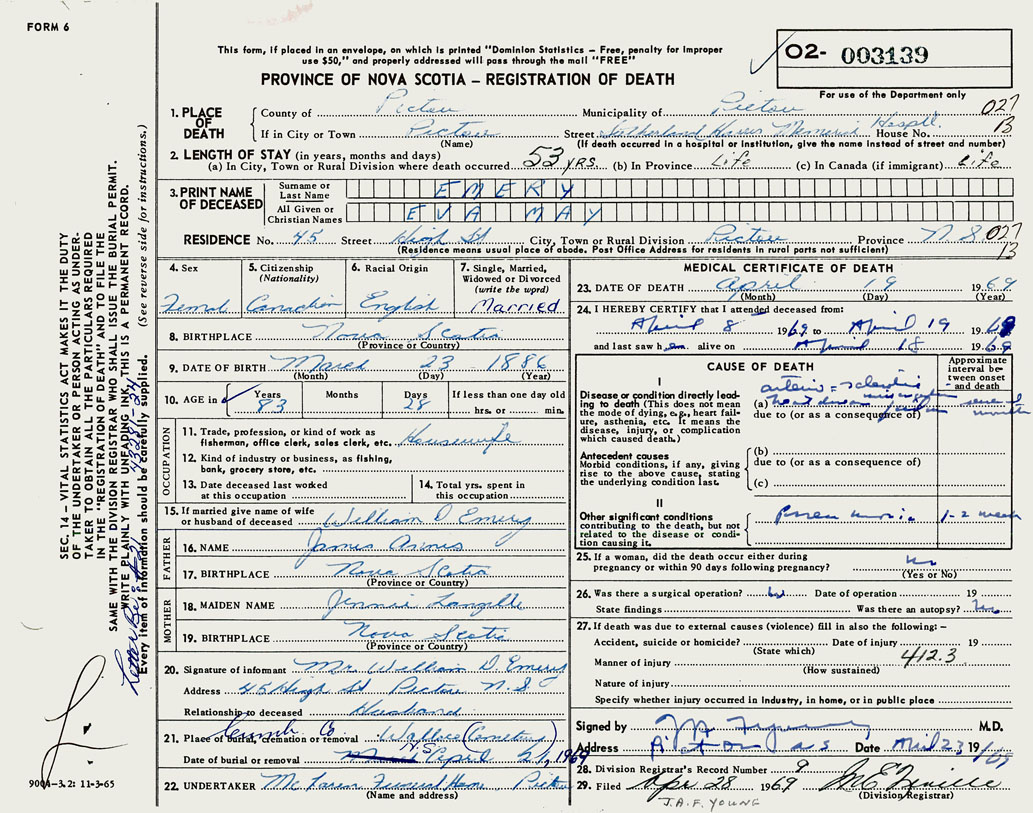 FORM 6
This form, if placed in an envelope, on which is printed "Dominion Statistics – Free, penalty for improper
use $50," and properly addressed will pass through the mail "FREE"
PROVINCE OF NOVA SCOTIA – REGISTRATION OF DEATH
02- 003139
For use of the Department only
027
13
SEC. 14 – VITAL STATISTICS ACT MAKES IT THE DUTY
OF THE UNDERTAKER OR PERSON ACTING AS UNDER-
TAKER TO OBTAIN ALL THE PARTICULARS REQUIRED
IN THE "REGISTRATION OF DEATH" AND TO FILE THE
SAME WITH THE DIVISION REGISTRAR WHO SHALL ISSUE THE BURIAL PERMIT.
WRITE PLAINLY WITH UNFADING INK, THIS IS A PERMANENT RECORD.
Every item of information should be carefully supplied. (See reverse side for instructions.)
1. PLACE OF DEATH
County of Pictou Municipality of Pictou
If in City or Town Pictou Street Sutherland Harris Memorial Hosptl. House No.
(Name) (If death occurred in a hospital or institution, give the name instead of street and number)
2. LENGTH OF STAY (in years, months and days)
(a) In City, Town or Rural Division where death occurred 53 YRS. (b) In Province Life (c) In Canada (if immigrant) Life
3. PRINT NAME OF DECEASED
Surname or Last Name EMERY
All Given or Christian Names EVA MAY
RESIDENCE No. 45 Street High St City, Town or Rural Division Pictou Province N S
027
13
(Residence means usual place of abode. Post Office Address for residents in rural parts not sufficient)
4. Sex 5. Citizenship (Nationality) 6. Racial Origin 7. Single, Married, Widowed or Divorced (write the word)
Femal Canadian English Married
8. BIRTHPLACE Nova Scotia
(Province or Country)
9. DATE OF BIRTH March 23 1886
(Month) (Day) (Year)
10. AGE in Years 83 Months Days 28 If less than one day old hrs. or min.
OCCUPATION
11. Trade, profession, or kind of work as fisherman, office clerk, sales clerk, etc. Housewife
12. Kind of industry or business, as fishing, bank, grocery store, etc.
13. Date deceased last worked at this occupation
14. Total yrs. spent in this occupation
15. If married give name of wife or husband of deceased William D Emery
FATHER
16. NAME James
17. BIRTHPLACE Nova Scotia
(Province or Country)
MOTHER
18. MAIDEN NAME Jennie Langille
19. BIRTHPLACE Nova Scotia
(Province or Country)
20. Signature of informant Mr William D. Emery
Address 45 High St Pictou N.S
Relationship to deceased Husband
21. Place of burial, cremation or removal Cumb Co Wallace (Cemetery) N.S.
Date of burial or removal April 21, 1969
22. UNDERTAKER McLaren Funeral Home Pictou
(Name and address)
MEDICAL CERTIFICATE OF DEATH
23. DATE OF DEATH April 19 1969
(Month) (Day) (Year)
24. I HEREBY CERTIFY that I attended deceased from:
April 8 1969 to April 19 1969
and last saw her alive on April 18 1969
CAUSE OF DEATH
Approximate interval between onset and death
I
Disease or condition directly lead-
ing to death (This does not mean
the mode of dying, e.g., heart fail-
ure, asthenia, etc. It means the
disease, injury, or complication
which caused death.)
(a) arterio-sclerotic heart disease
due to (or as a consequence of)
Antecedent causes
Morbid conditions, if any, giving
rise to the above cause, stating
the underlying condition last.
(b)
due to (or as a consequence of)
(c)
II
Other significant conditions
contributing to the death, but not
related to the disease or condi-
tion causing it.
Pneumonia 1-2 week
25. If a woman, did the death occur either during
pregnancy or within 90 days following pregnancy? no
(Yes or No)
26. Was there a surgical operation? no Date of operation 19
State findings Was there an autopsy? no
27. If death was due to external causes (violence) fill in also the following: –
Accident, suicide or homicide? Date of injury 19
(State which)
412.3
Manner of injury
(How sustained)
Nature of injury
Specify whether injury occurred in industry, in home, or in public place
Signed by M.D.
Address Pictou N S Date April 23 1969
28. Division Registrar's Record Number 9
29. Filed Apr 28 1969
(Division Registrar)
J.A.F. YOUNG
9004-3.2: 11-3-65